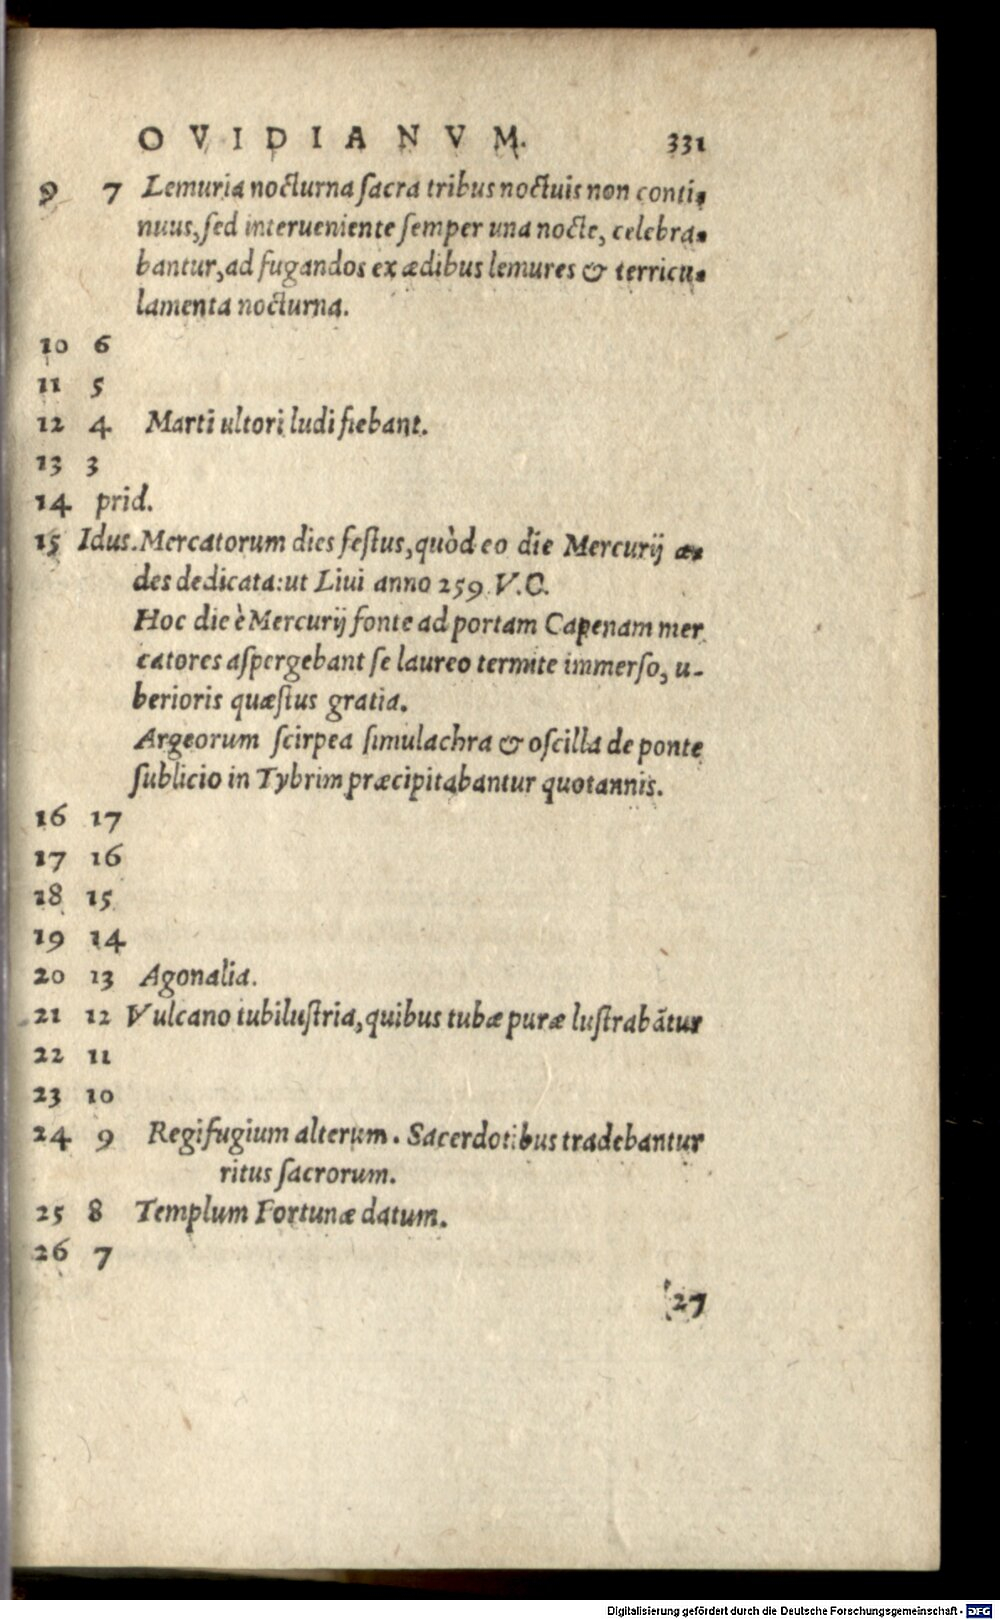 OVIDIANVM. 331
9 7 Lemuria nocturna sacra tribus noctuis non conti-
nuus, sed interueniente semper una nocte, celebra-
bantur, ad fugandos ex ædibus lemures & terricu-
lamenta nocturna.
10 6
11 5
12 4 Marti ultori ludi fiebant.
13 3
14 prid.
15 Idus. Mercatorum dies festus, quòd eo die Mercurij æ-
des dedicata: ut Liui anno 259 V.C.
Hoc die è Mercurij fonte ad portam Capenam mer
catores aspergebant se laureo termite immerso, u-
berioris quæstus gratia.
Argeorum scirpea simulachra & oscilla de ponte
sublicio in Tybrim præcipitabantur quotannis.
16 17
17 16
18 15
19 14
20 13 Agonalia.
21 12 Vulcano tubilustria, quibus tubæ puræ lustrabãtur
22 11
23 10
24 9 Regifugium alterum. Sacerdotibus tradebantur
ritus sacrorum.
25 8 Templum Fortunæ datum.
26 7
27
Digitalisierung gefördert durch die Deutsche Forschungsgemeinschaft - DFG